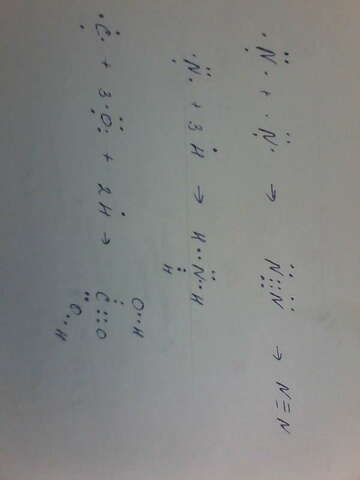 ·N̈· + ·N̈· → N⋮⋮N → N≡N
·N̈· + 3 Ḣ → H··N̈··H
H
·C· + 3 ·Ö· + 2 Ḣ → O··H
C::O
O··H